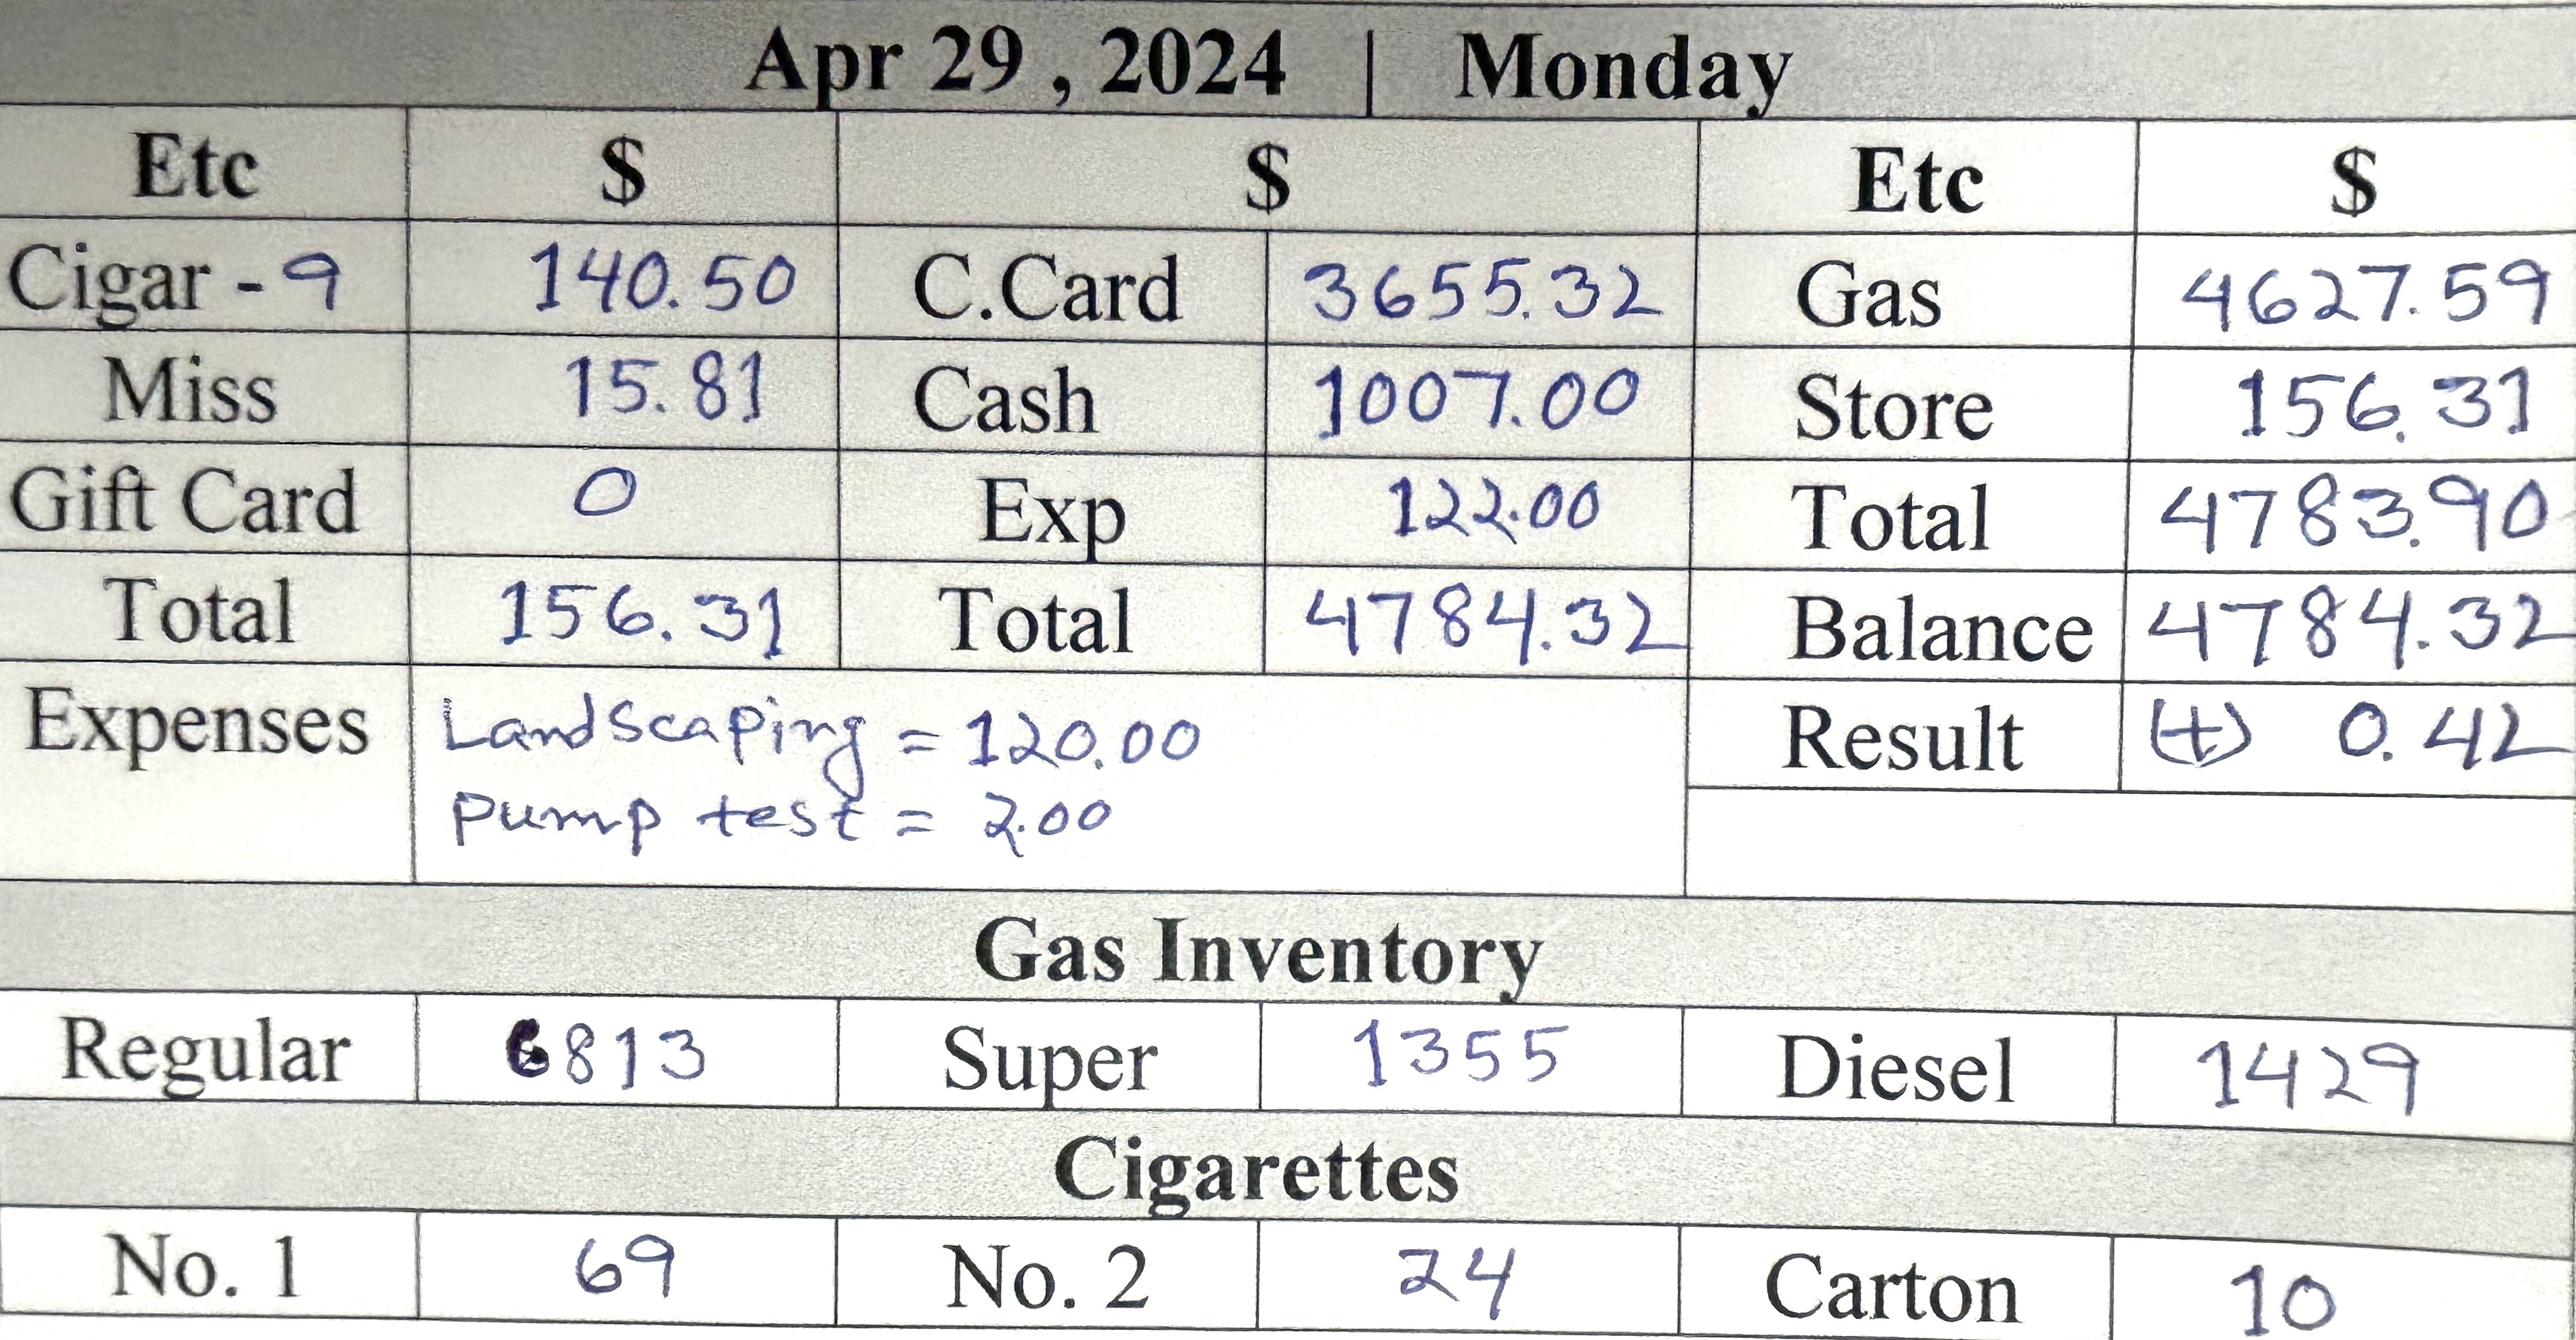 Apr 29 , 2024 | Monday
Etc $ $ Etc $
Cigar - 9 140.50 C.Card 3655.32 Gas 4627.59
Miss 15.81 Cash 1007.00 Store 156.31
Gift Card 0 Exp 122.00 Total 4783.90
Total 156.31 Total 4784.32 Balance 4784.32
Expenses Landscaping = 120.00 Result (+) 0.42
Pump test = 2.00
Gas Inventory
Regular 6813 Super 1355 Diesel 1429
Cigarettes
No. 1 69 No. 2 24 Carton 10